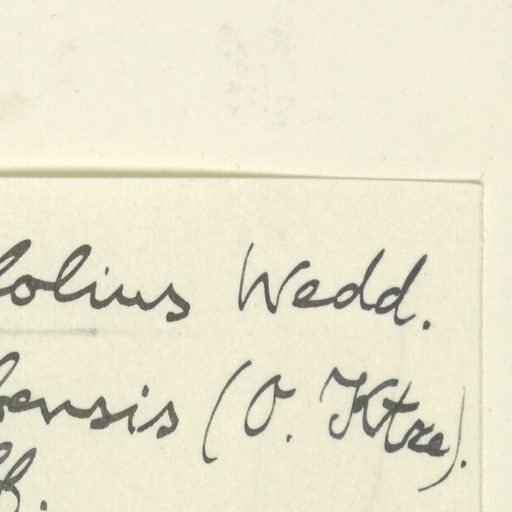 folius Wedd.
bensis (O. Ktze).
ff.